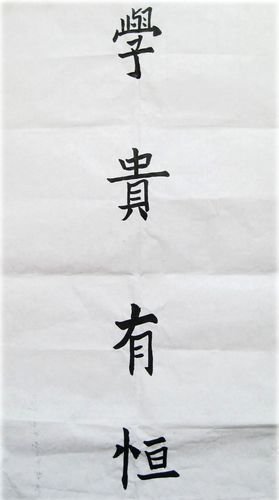 學貴有恒